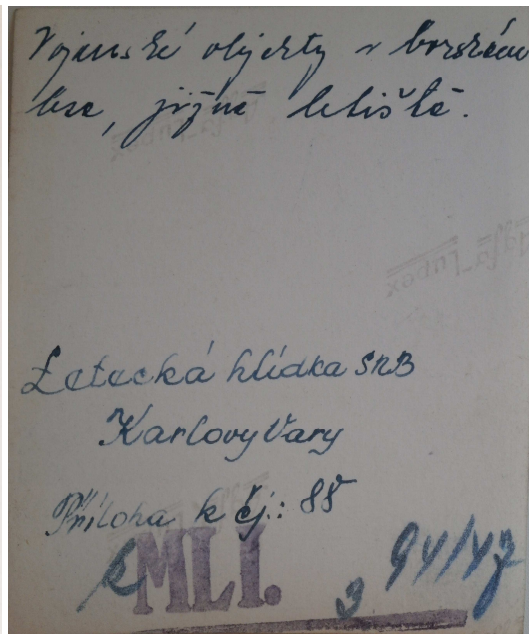 Vojenské objekty v borském
lese, jižně letiště.
Letecká hlídka SNB
Karlovy Vary
Příloha k čj.: 88
k MLI. 3 94/47